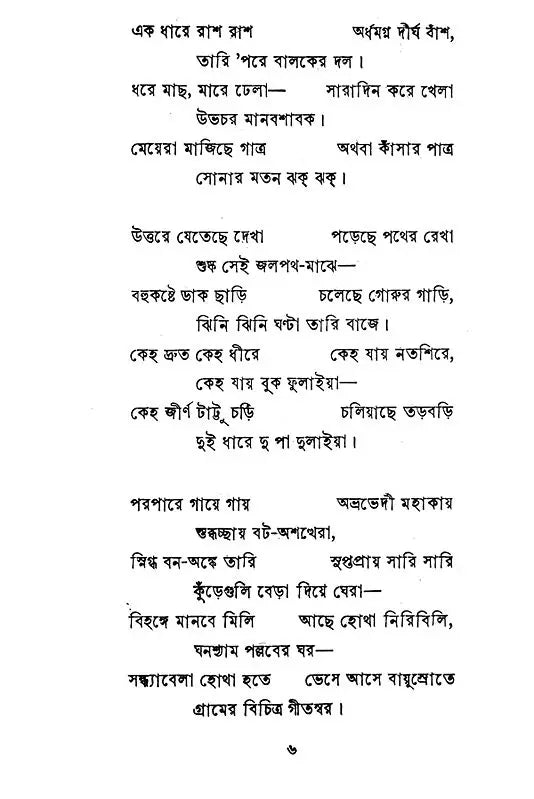 এক ধারে রাশ রাশ অর্ধমগ্ন দীর্ঘ বাঁশ,
তারি 'পরে বালকের দল।
ধরে মাছ, মারে ঢেলা— সারাদিন করে খেলা
উভচর মানবশাবক।
মেয়েরা মাজিছে গাত্র অথবা কাঁসার পাত্র
সোনার মতন ঝক্ ঝক্।
উত্তরে যেতেছে দেখা পড়েছে পথের রেখা
শুষ্ক সেই জলপথ-মাঝে—
বহুকষ্টে ডাক ছাড়ি চলেছে গোরুর গাড়ি,
ঝিনি ঝিনি ঘণ্টা তারি বাজে।
কেহ দ্রুত কেহ ধীরে কেহ যায় নতশিরে,
কেহ যায় বুক ফুলাইয়া—
কেহ জীর্ণ টাট্টু চড়ি চলিয়াছে তড়বড়ি
দুই ধারে দু পা দুলাইয়া।
পরপারে গায়ে গায় অভ্রভেদী মহাকায়
স্তব্ধচ্ছায় বট-অশত্থেরা,
স্নিগ্ধ বন-অঙ্কে তারি সুপ্তপ্রায় সারি সারি
কুঁড়েগুলি বেড়া দিয়ে ঘেরা—
বিহঙ্গে মানবে মিলি আছে হোথা নিরিবিলি,
ঘনশ্যাম পল্লবের ঘর—
সন্ধ্যাবেলা হোথা হতে ভেসে আসে বায়ুস্রোতে
গ্রামের বিচিত্র গীতস্বর।
৬